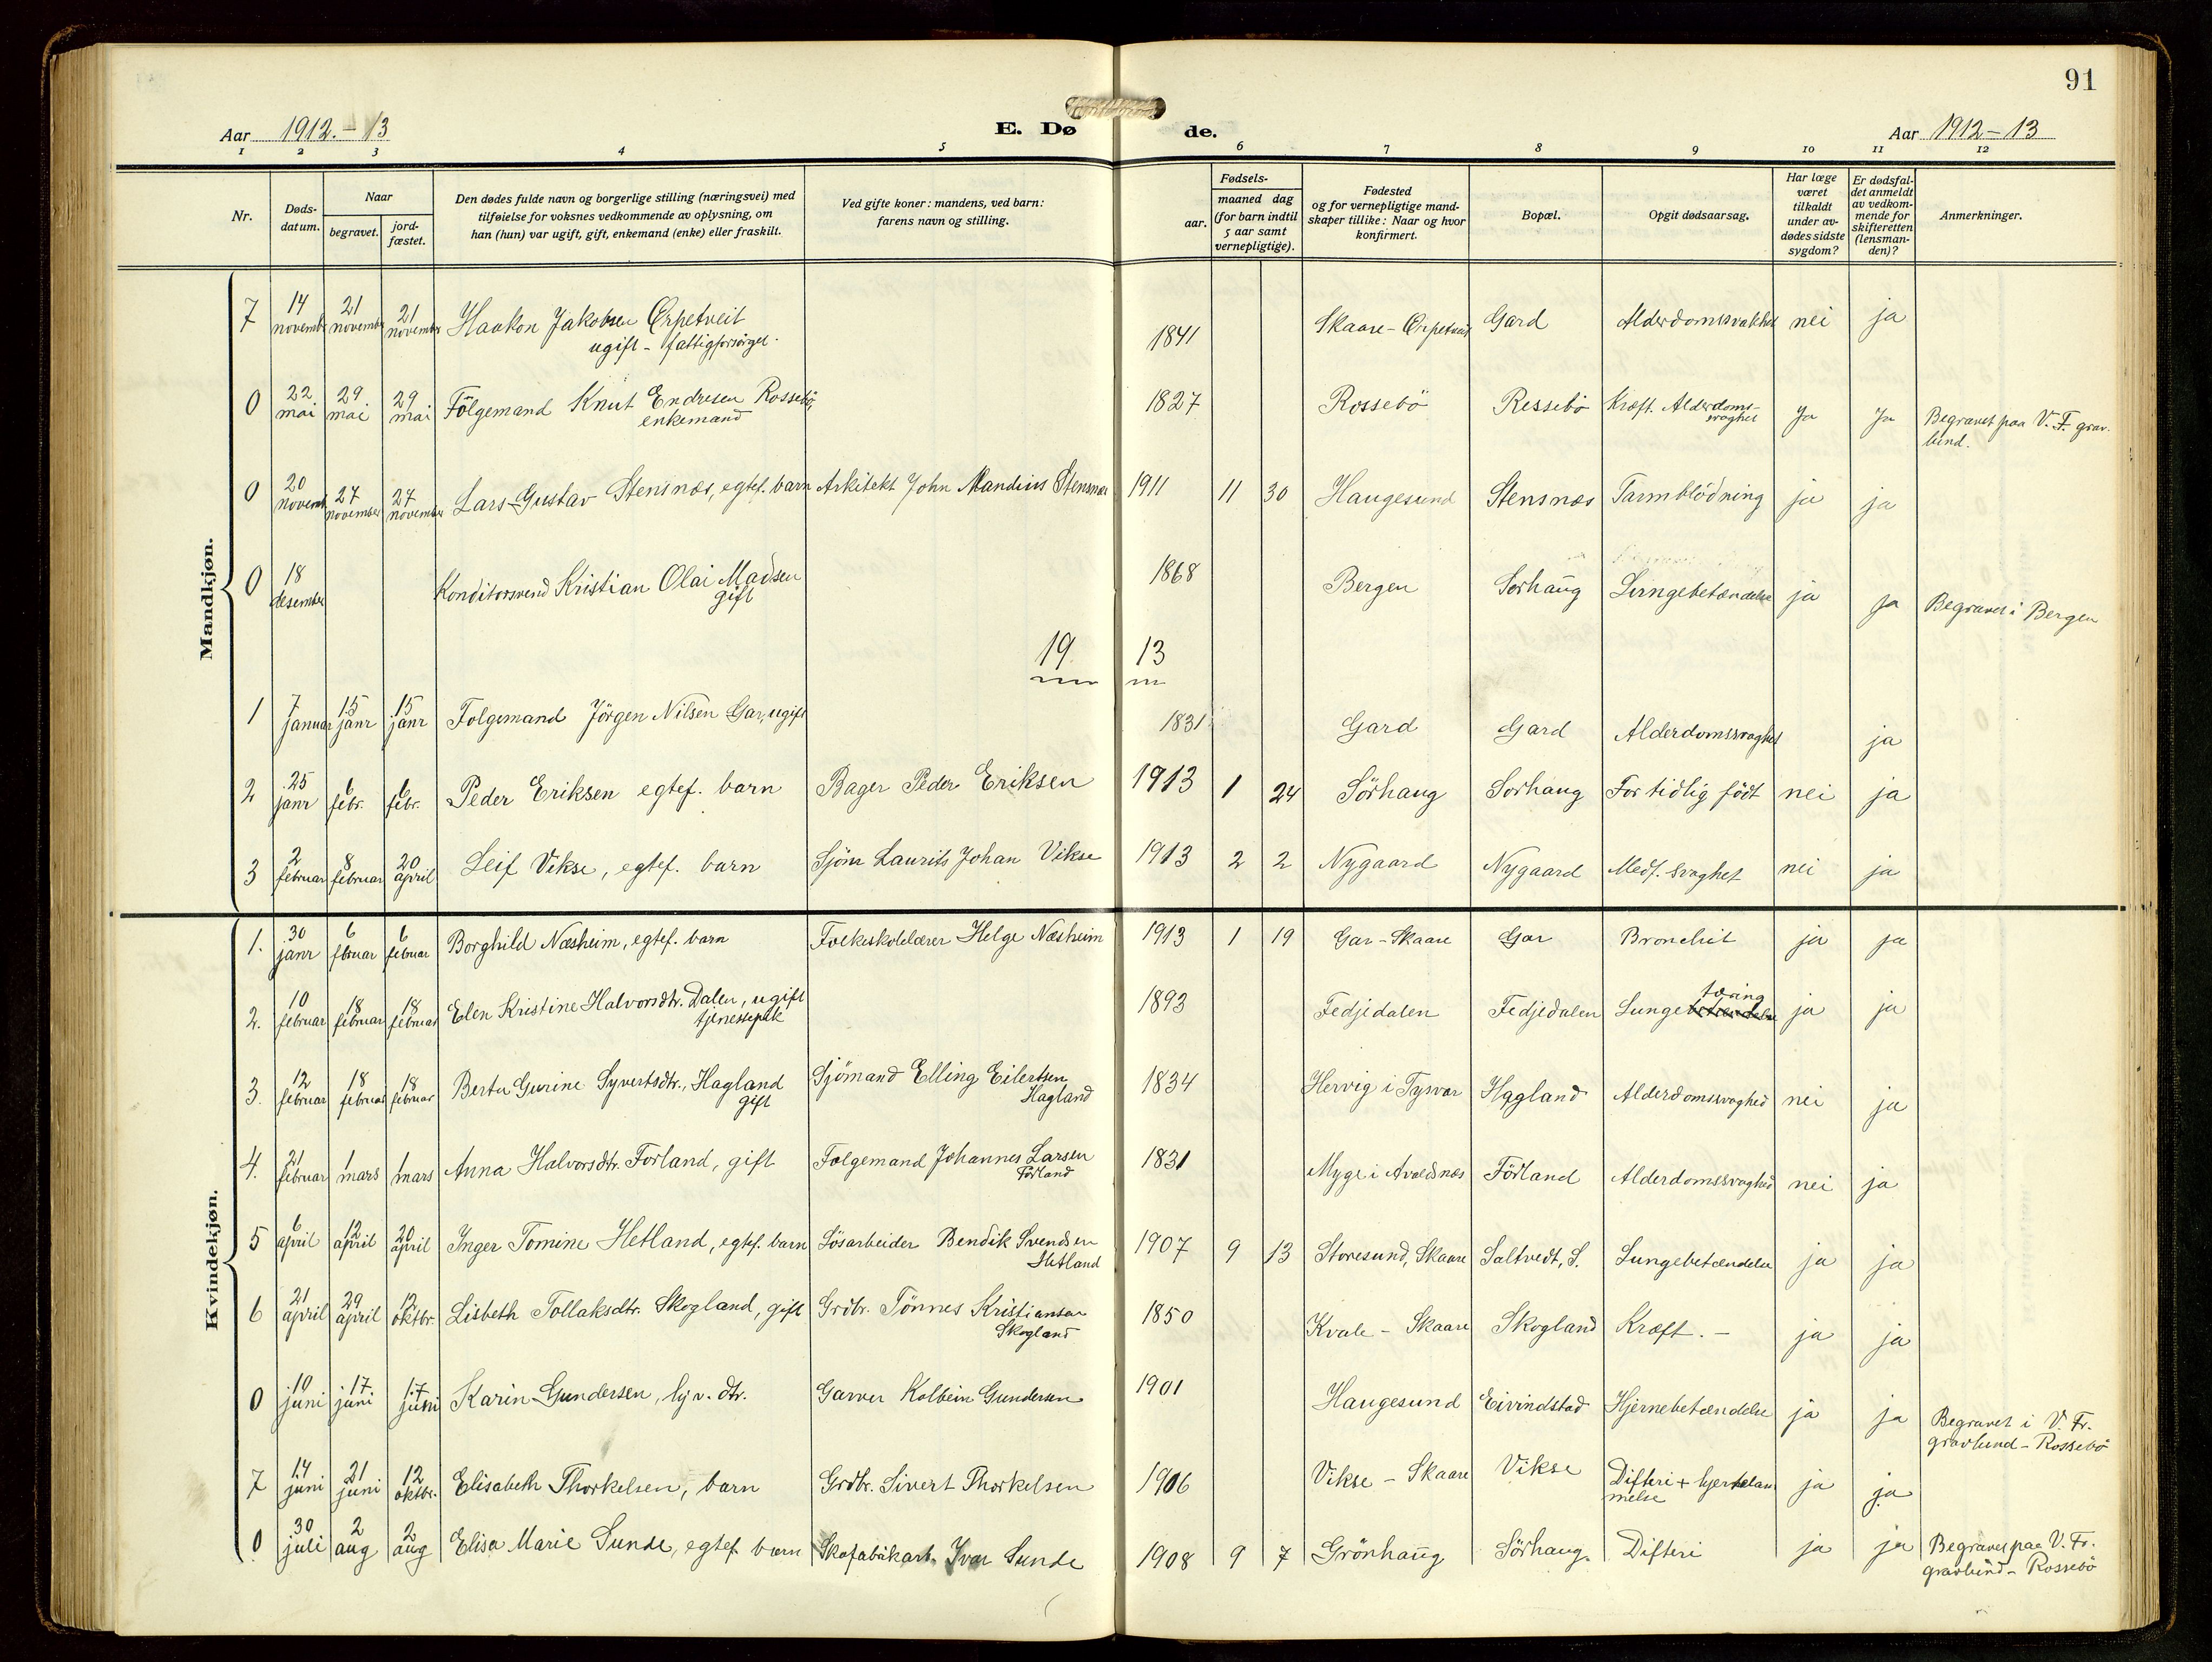 91
Aar 1912.-13
E. Dø de.
Aar 1912-13
1 2 3 4 5 6 7 8 9 10 11 12
Nr.
Døds-
datum.
Naar
begravet.
jord-
fæstet.
Den dødes fulde navn og borgerlige stilling (næringsvei) med
tilføielse for voksnes vedkommende av oplysning, om
han (hun) var ugift, gift, enkemand (enke) eller fraskilt.
Ved gifte koner: mandens, ved barn:
farens navn og stilling.
Fødsels-
aar.
maaned dag
(for barn indtil
5 aar samt
vernepligtige).
Fødested
og for vernepligtige mand-
skaper tillike: Naar og hvor
konfirmert.
Bopæl.
Opgit dødsaarsag.
Har læge
været
tilkaldt
under av-
dødes sidste
sygdom?
Er dødsfal-
det anmeldt
av vedkom-
mende for
skifteretten
(lensman-
den)?
Anmerkninger.
Mandkjøn.
7 14 november 21 november 21 november Haakon Jakobsen Erpetveit 1841 Skaare - Erpetveit Gard Alderdomssvakhet nei ja
ugift - fattigforsörget.
0 22 mai 29 mai 29 mai Fölgemand Knut Endresen Rossebö, 1827 Rossebö Ressebö Kræft. Alderdoms- ja Ja Begravet paa V. F. grav.
enkemand svaghet lund.
0 20 novemb 27 november 27 november Lars Gustav Stensnæs, egtef. barn Arkitekt John Mandius Stensnæs 1911 11 30 Haugesund Stensnæs Tarmblödning ja ja
0 18 desember Konditorsvend Kristian Olai Madsen 1868 Bergen Sorhaug Lungebetændelse ja ja Begravet i Bergen
gift
19 13
1 7 Januar 15 janr 15 janr Folgemand Jörgen Nilsen Gar, ugift 1831 Gard Gard Alderdomssvaghet ja
2 25 janr 6 febr. 6 febr. Peder Eriksen egtef. barn Bager Peder Eriksen 1913 1 24 Sörhaug Sorhaug For tidlig födt nei ja
3 2 februar 8 februar 20 april Leif Vikse, egtef. barn Sjöm Laurits Johan Vikse 1913 2 2 Nygaard Nygaard Medf. svaghet nei ja
Kvindekjøn.
1. 30 janr 6 februar 6 februar Borghild Næsheim, egtef. barn Folkeskolelærer Helge Næsheim 1913 1 19 Gar - Skaare Gar Bronchit ja ja
2. 10 februar 18 februar 18 februar Elen Kristine Halvorsdtr. Dalen, ugift 1893 Fedjedalen Fedjedalen Lungebetændelse tæring ja ja
tjenestepik
3. 12 februar 18 februar 18 februar Berta Gurine Syvertsdtr. Hagland Sjömand Elling Eilertsen 1834 Hervig i Tysvær Hagland Alderdomssvaghed nei ja
gift Hagland
4. 21 februar 1 mars 1 mars Anna Halvorsdtr. Forland, gift Folgemand Johannes Larsen 1831 Myge i Avaldsnæs Förland Alderdomssvaghed nei ja
Förland
5 6 april 12 april 20 april Inger Tomine Hetland, egtef. barn Lösarbeider Bendik Svendsen 1907 9 13 Storesund, Skaare Saltvedt, S. Lungebetændelse ja ja
Hetland
6 21 april 29 april 12 oktbr. Lisbeth Tollaksdtr. Skogland, gift Grdbr. Tönnes Kristiansen 1850 Kvale - Skaare Skogland Kræft. - ja ja
Skogland
0 10 juni 17 juni 17 juni Karin Gundersen, hjv. dtr. Garver Kolbein Gundersen 1901 Haugesund Eivindstad Hjernebetændelse ja ja Begravet i V. Fr.
gravlund - Rossebö
7 14 juni 21 juni 12 oktbr. Elisabeth Thorkelsen, barn Grdbr. Sivert Thorkelsen 1906 Vikse - Skaare Vikse Difteri + hjertelam ja ja
melse
0 30 juli 2 aug 2 aug Elisa Marie Sunde, egtef. barn Skofabrikarb. Ivar Sunde 1908 9 7 Grönhaug Sörhaug. Difteri ja ja Begravet paa V. Fr.
gravlund - Rossebö